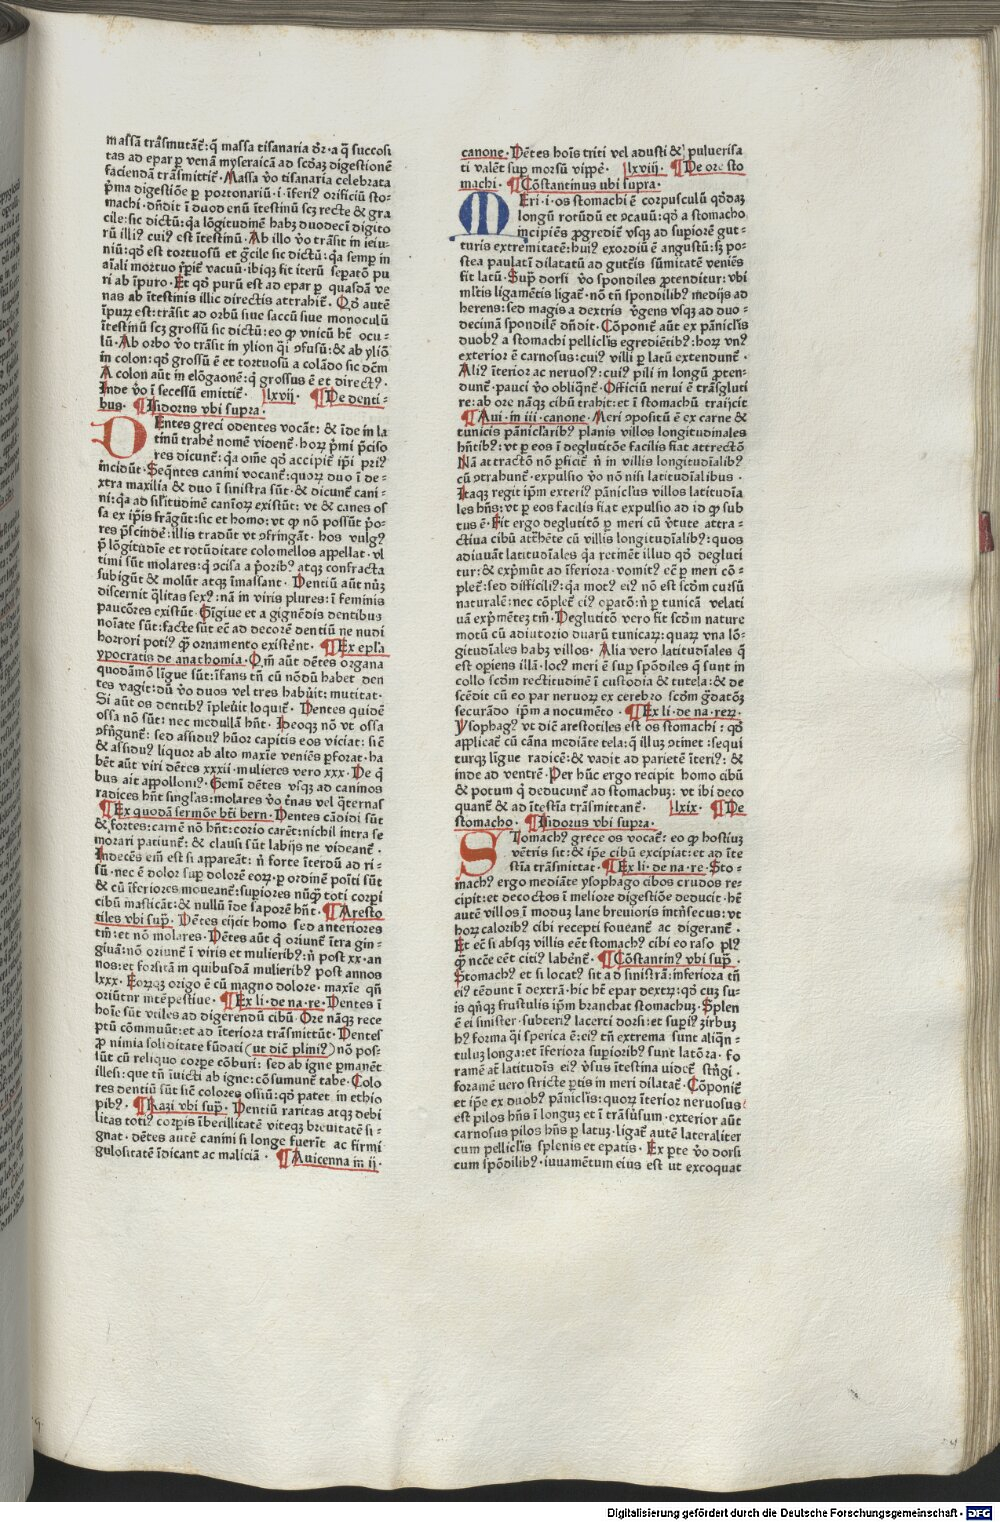 massā trāsmutāt̄: q̄ massa tisanaria dr̄· a q̄ succosi
tas ad epar p̱ venā myseraicā ad scd̄az digestionē
faciendā trāsmittit̄· Massa v̄o tisanaria celebrata
p̄ma digestiōe p̱ portonariū· i· īferiꝰ orificiū sto-
machi· dn̄dit ī duodenū ītestinū scꝫ recte & gra
cile: sic dictū: q̄a lōgitudinē habꝫ duodecī digito
rū illiꝰ cuiꝰ est ītestinū· Ab illo v̄o trāsit in ieiu-
niū: qd̄ est tortuosū et gc̄ile sic dictū: q̄a semp̱ in
aīali mortuo
ri ab īpuro· Et qd̄ purū est ad epar p̱ quasdā ve
nas ab ītestinis illic directis attrahit̄· Qd̄ autē
īpurꝫ est: trāsit ad orbū siue saccū siue monoculū
ītestinū scꝫ grossū sic dictū: eo ꝙ vnicū hꝫ ocu-
lū· Ab orbo v̄o trāsit in ylion q̄i ꝯfusū: & ab yliō
in colon: qd̄ grossū ē et tortuosū a colādo sic dc̄m
A colon aūt in elōgaonē: q̄ grossus ē et directꝰ·
Inde v̄o ī secessū emittit̄· lxvij· ¶ De denti-
bus· ¶ Isidorus vbi supra·
DEntes greci odentes vocāt: & īde in la
tinū trahē nomē vident̄· horꝝ p̄mi p̄ciso
res dicunt̄: q̄a om̄e qd̄ accipit̄ ip̄i priꝰ
incidūt· Seqn̄tes canini vocant̄: quorꝝ duo ī de-
xtra maxilia & duo ī sinistra sūt· & dicunt̄ cani-
ni: q̄a ad sil'itudinē caniorꝝ existūt: vt & canes os
sa ex ip̄is frāgūt: sic et homo: vt ꝙ nō possūt p̄o-
res p̄scindē: illis tradūt vt ꝯfringāt· hos vulgꝰ
p̄ lōgitudīe et rotūditate colomellos appellat· vl
timi sūt molares: q̄ ꝯcisa a p̄oribꝰ atqꝫ confracta
subigūt & molūt atqꝫ īmassant· Dentiū aūt nūꝫ
discernit qlitas sexꝰ: nā in viris plures: ī feminis
pauciores existūt· Gīgiue et a gignēdis dentibus
noīate sūt: facte sūt eē ad decorē dentiū ne nudi
horrori potiꝰ qꝫ ornamento existent· ¶ Ex ep̄la
ypocratis de anathomia· Qm̄ aūt dētes organa
quodāmo ligue sūt: īfans tn̄ cū nōdū habet den
tes vagit: dū v̄o duos vel tres habuit: mutitat·
Si aūt os dentibꝰ īpleuit loquit̄· Dentes quidē
ossa nō sūt: nec medullā hn̄t· Ideoqꝫ nō vt ossa
ꝯfrīgunt̄: sed assiduꝰ hūor capitis eos viciat: sic̄
& assiduꝰ liquor ab alto maxīe veniēs p̱forat· ha
bēt aūt viri dētes xxxii· mulieres vero xxx· De q̄
bus ait appolloniꝰ· Gemī dētes vsqꝫ ad caninos
radices hn̄t singl'as: molares v̄o t̄nas vel q̄ternas
¶ Ex quodā sermōe bt̄i bern· Dentes cādidi sūt
& fortes: carnē nō hn̄t: corio carēt: nichil intra se
morari patiunt̄: & clausi sūt labijs ne videant̄·
Indecēs eīm est si appareāt: n̄ forte īterdū ad ri-
sū· nec ē dolor sup̱ dolorē eorꝝ· p̱ ordinē poīti sūt
& cū īferiores moueant̄: supiores nūqꝫ toti corpi
cibū masticāt: & nullū īde saporē hn̄t· ¶ Aresto
tiles vbi sup̱· Dētes eijcit homo sed anteriores
tm̄: et nō molares· Dētes aūt q̄ oriunt̄ ītra gin-
giuā: nō oriunt̄ ī viris et mulieribꝰ: n̄ post xx· an
nos: et forsitā in quibusdā mulieribꝰ post annos
lxxx· Eorꝝqꝫ origo ē cū magno dolore· maxīe qn̄
oriūtur intēpestiue· ¶ Ex li· de na· re· Dentes ī
hoīe sūt vtiles ad digerendū cibū· Ore nāqꝫ rece
ptū cōmuūt: et ad īteriora trāsmittūt· Dentes
ꝓ nimia soliditate fūdati (ut dic̄ pliniꝰ) nō pos-
sūt cū reliquo corpe cōburi: sed ab igne p̱manēt
illesi: que tn̄ īuicti ab igne: cōsumunt̄ tabe· Colo
res dentiū sūt sic̄ colores ossiū: qd̄ patet in ethio
pibꝰ· ¶ Razi vbi sup̱· Dentiū raritas atqꝫ debi
litas totiꝰ corpis ībecillitatē viteqꝫ breuitatē si-
gnat· dētes autē canini si longe fuerīt ac firmi
gulositatē īdicant ac maliciā· ¶ Avicenna in ij·
canone· Dētes hoīs triti vel adusti & pulverisa
ti valēt sup̱ morsū vipp̱e· lxviij· ¶ De ore sto
machi· ¶ Cōstantinus ubi supra·
MEri· i· os stomachi ē corpusculū qd̄aꝫ
longū rotūdū et ꝯcauū: qd̄ a stomacho
incipiēs ꝓgredit̄ vsqꝫ ad supiorē gut-
turis extremitatē: huiꝰ exordiū ē angustū: sꝫ po-
stea paulatī dilatatū ad gutt̄is sūmitatē veniēs
fit latū· Sup̱ dorsi v̄o spondiles ꝓtenditur: vbi
ml'tis ligamētis ligat̄· nō tn̄ spondilibꝰ medijs ad
herens: sed magis a dextris v̄gens vsqꝫ ad duo-
decimā spondilē dn̄dit· Cōponit̄ aūt ex pānicl'is
duobꝰ a stomachi pelliclis egredientibꝰ: horꝝ vnꝰ
exterior ē carnosus: cuiꝰ villi p̱ latū extendunt̄·
Aliꝰ īterior ac neruosꝰ: cuiꝰ pili in longū ꝓten-
dunt̄· pauci v̄o obliqn̄t· Officiū nerui ē trāsgluti
re: ab ore nāqꝫ cibū trahit: et ī stomachū traijcit
¶ Aui· in iii· canone· Meri ꝯpositū ē ex carne &
tunicis pānicl'aribꝰ planis villos longitudinales
hn̄tibꝰ: vt p̱ eos ī deglutitōe facilis fiat attrectō
Nā attractō nō p̱ficit̄ n̄ in villis longitudīalibꝰ
cū ꝯtrahunt̄· expulsio v̄o nō nisi latitudīalibus·
Itaqꝫ regit ip̄m exteriꝰ pānicl'us villos latitudīa
les hn̄s: vt p̱ eos facilis fiat expulsio ad id ꝙ sub
tus ē· Fit ergo deglutitō p̱ meri cū v̄tute attra-
ctiua cibū att̄hēte cū villis longitudīalibꝰ: quos
adiuuāt latitudīales q̄a retinēt illud qd̄ degluti
tur: & exp̄mūt ad īferiora· vomitꝰ eē p̱ meri cō-
plet̄: sed difficiliꝰ: q̄a motꝰ eiꝰ nō est scd̄m cursū
naturalē: nec cōplet̄ eiꝰ oparatō: n̄ p̱ tunicā velati
uā exp̄mētez tm̄· Deglutitō vero fit scd̄m nature
motū cū adiutorio duarū tunicarꝝ: quarꝝ vna lō-
gitudīales habꝫ villos· Alia vero latitudīales q̄
est opiens illā· locꝰ meri ē sup̱ spōdiles q̄ sunt in
collo scd̄m rectitudinē ī custodia & tutela: & de
scēdit cū eo par neruorꝝ ex cerebro scd̄m gd̄atōꝫ
securādo ip̄m a nocumēto· ¶ Ex li· de na· reꝝ·
Ysophagꝰ vt dic̄ arestotiles est os stomachi: qd̄
applicat̄ cū cāna mediāte tela: q̄ illuꝫ ꝯtinet: sequi
turqꝫ ligue radicē: & vadit ad parietē īteriꝰ: &
inde ad ventrē· Per hūc ergo recipit homo cibū
& potum q̄ deducunt̄ ad stomachuꝫ: vt ibi deco
quant̄ & ad ītestīa trāsmittant̄· lxix· ¶ De
stomacho· ¶ Isidorus vbi supra·
STomachꝰ grece os vocat̄: eo ꝙ hostiuꝫ
vētris sit: & ip̄e cibū excipiat: et ad īte
stīa trāsmittat· ¶ Ex li· de na· re· Sto-
machꝰ ergo mediāte ysophago cibos crudos re-
cipit: et decoctos ī meliore digestiōe deducit· hꝫ
autē villos ī moduꝫ lane breuioris intn̄secus: vt
horꝝ caloribꝰ cibi recepti foueant̄ ac digerant̄·
Et eē si absqꝫ villis eēt stomachꝰ cibi eo raso plꝰ
qꝫ nccē eēt citiꝰ labēnt̄· ¶ Cōstantinꝰ vbi sup̱·
Stomachꝰ et si locatꝰ sit ad sinistrā: inferiora tn̄
eiꝰ tēdunt ī dextrā· hic hꝫ epar dextrꝝ: qd̄ cuꝫ su-
is qn̄qꝫ frustulis ip̄m branchat stomachuꝫ· Splen
ē ei sinister· subteriꝰ lacerti dorsi: et supiꝰ zirbuꝫ
hꝰ forma q̄i sperica ē: eiꝰ tn̄ extrema sunt aliqn̄-
tuluꝫ longa: et īferiora supioribꝰ sunt latōra· fo
ramē at̄ latitudīs eiꝰ v̄sus ītestīa videt̄ st̄ngi·
foramē vero stricte p̱tis in meri dilatat̄· Cōponit̄
et ip̄e ex duobꝰ pānicl'is: quorꝝ īterior neruosus
est pilos hn̄s ī longuꝫ et ī trāsūsum· exterior aūt
carnosus pilos hn̄s p̱ latuꝫ· ligat̄ autē lateraliter
cum pelliclis splenis et epatis· Ex pte v̄o dorsi
cum spōdilibꝰ· iuuamētum eius est ut excoquat
Digitalisierung gefördert durch die Deutsche Forschungsgemeinschaft · DFG